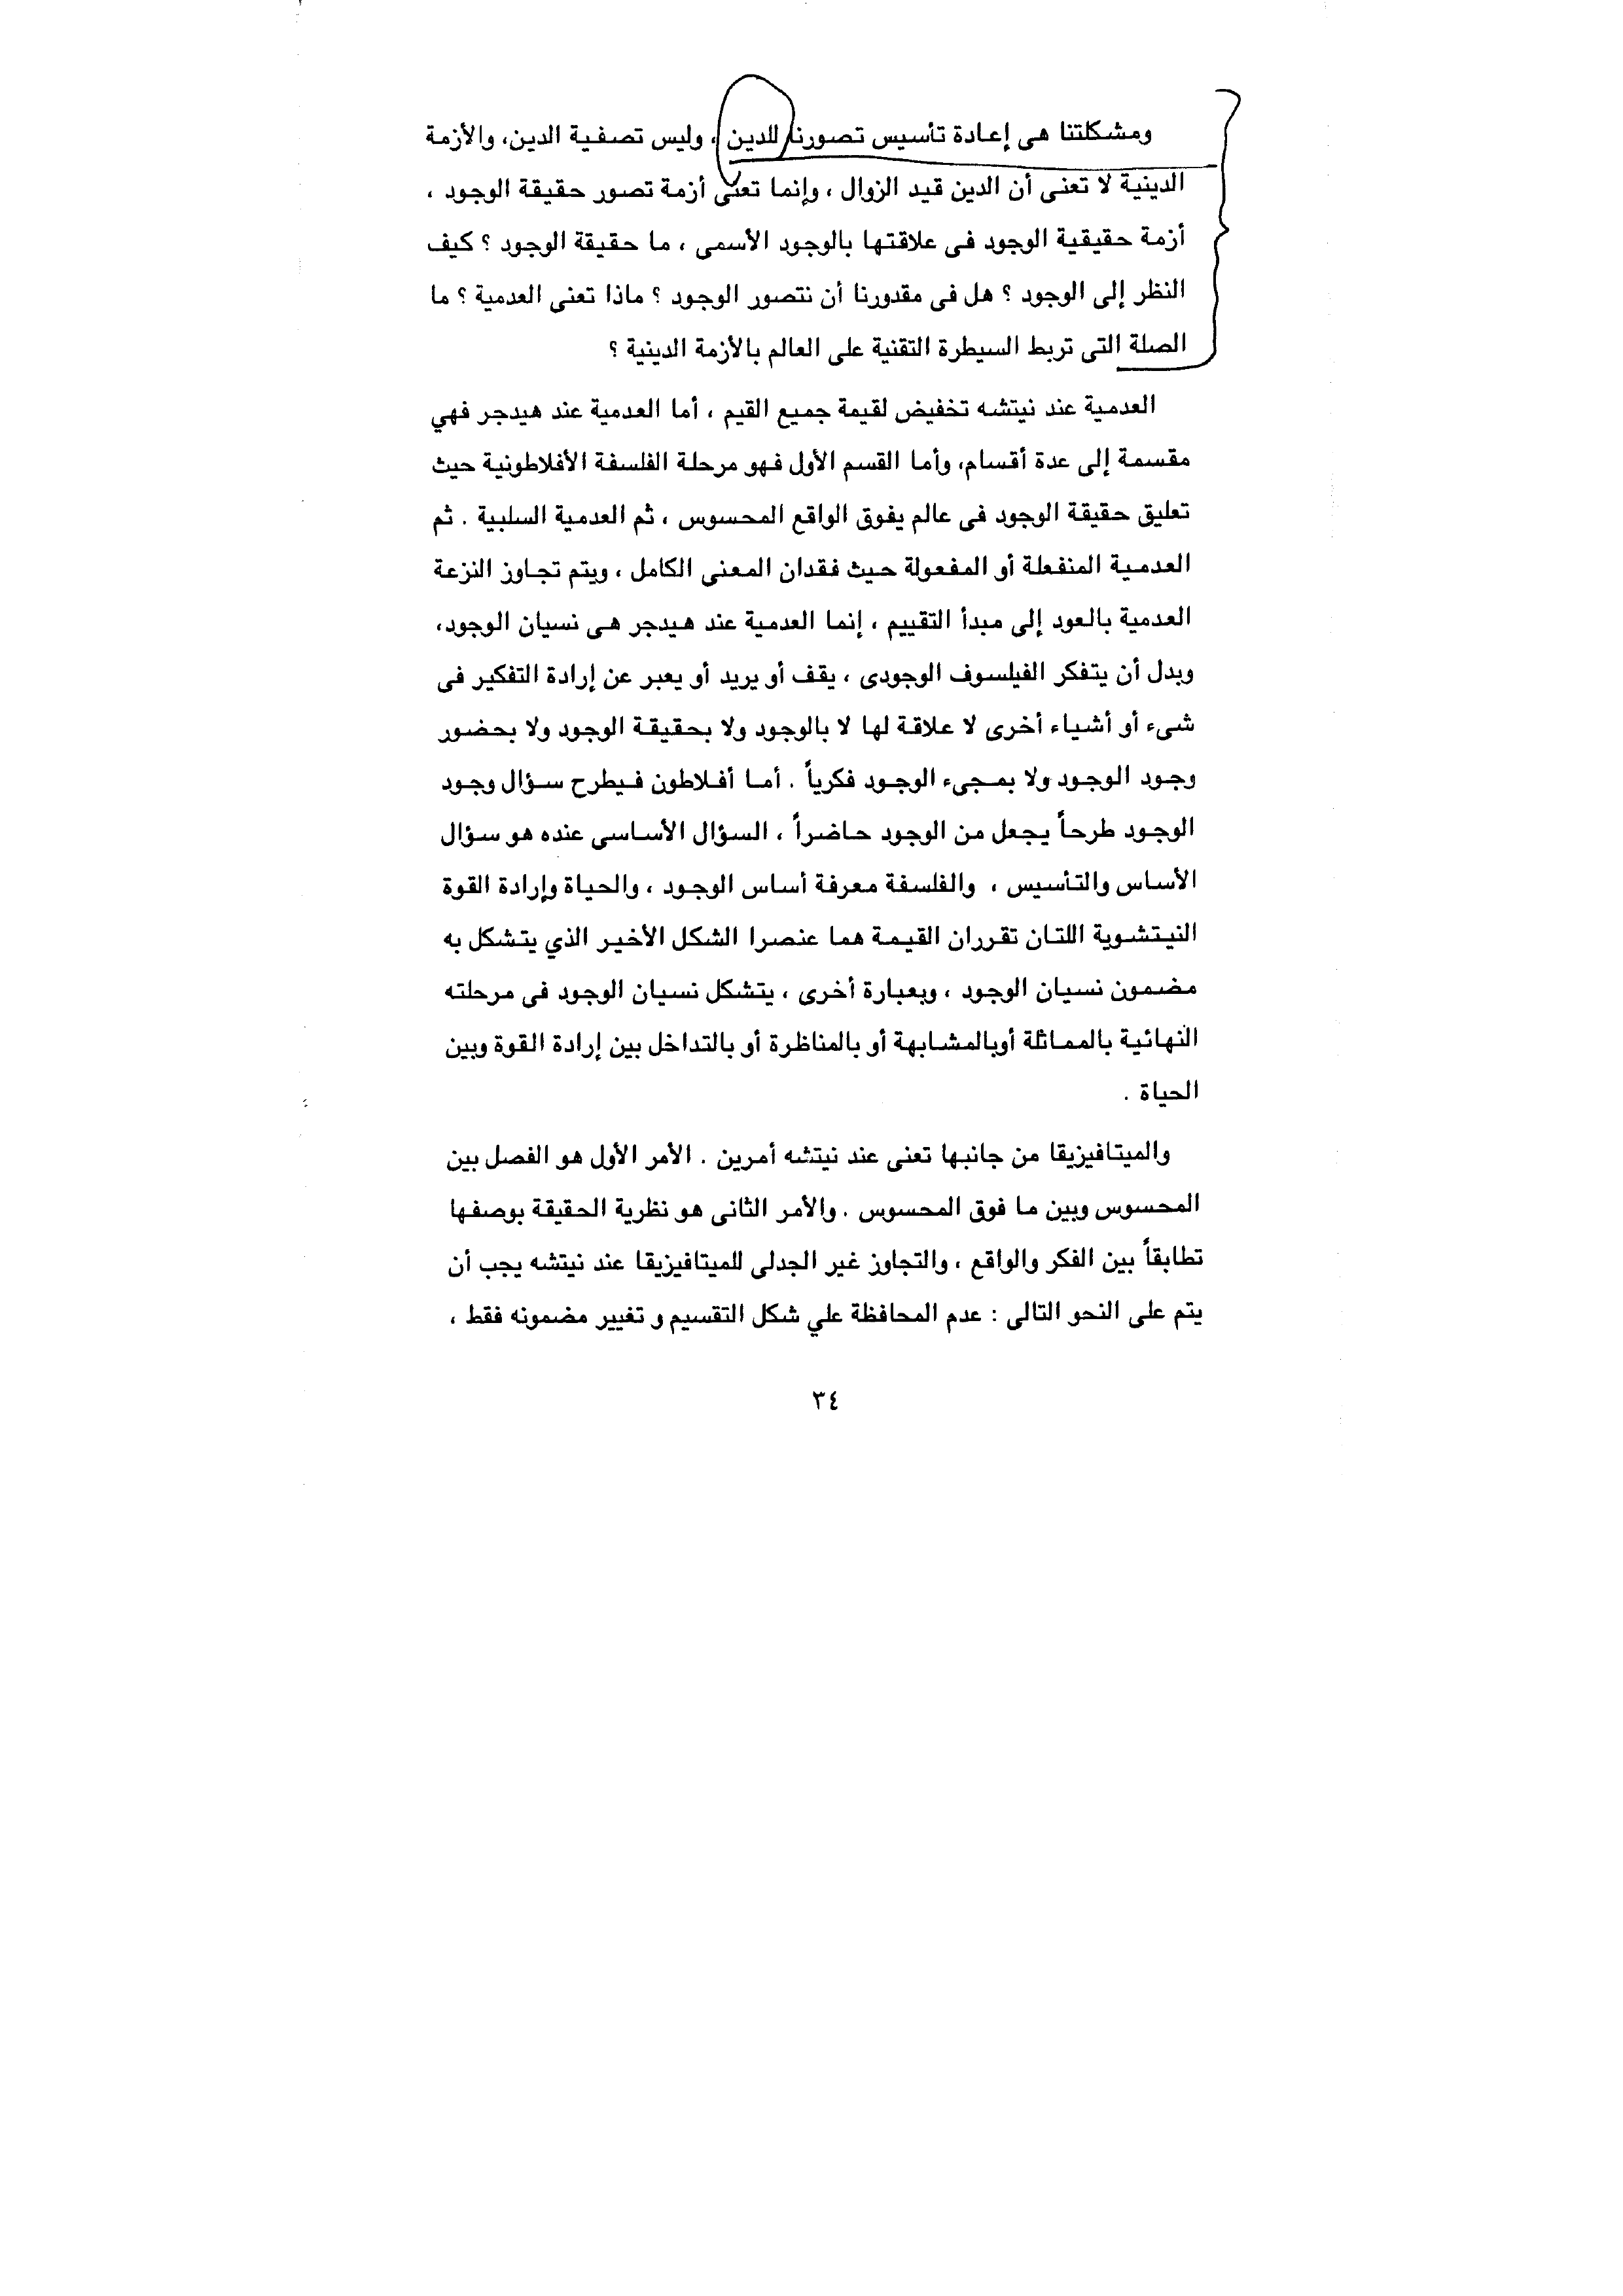 ومشكلتنا هى إعادة تأسيس تصورنا للدين ، وليس تصفية الدين، والأزمة
الدينية لا تعنى أن الدين قيد الزوال ، وإنما تعنى أزمة تصور حقيقة الوجود ،
أزمة حقيقية الوجود فى علاقتها بالوجود الأسمى ، ما حقيقة الوجود ؟ كيف
النظر إلى الوجود ؟ هل فى مقدورنا أن نتصور الوجود ؟ ماذا تعنى العدمية ؟ ما
الصلة التى تربط السيطرة التقنية على العالم بالأزمة الدينية ؟
العدمية عند نيتشه تخفيض لقيمة جميع القيم ، أما العدمية عند هيدجر فهي
مقسمة إلى عدة أقسام، وأما القسم الأول فهو مرحلة الفلسفة الأفلاطونية حيث
تعليق حقيقة الوجود فى عالم يفوق الواقع المحسوس ، ثم العدمية السلبية . ثم
العدمية المنفعلة أو المفعولة حيث فقدان المعنى الكامل ، ويتم تجاوز النزعة
العدمية بالعود إلى مبدأ التقييم ، إنما العدمية عند هيدجر هى نسيان الوجود،
وبدل أن يتفكر الفيلسوف الوجودى ، يقف أو يريد أو يعبر عن إرادة التفكير فى
شىء أو أشياء أخرى لا علاقة لها لا بالوجود ولا بحقيقة الوجود ولا بحضور
وجود الوجود ولا بمجىء الوجود فكرياً . أما أفلاطون فيطرح سؤال وجود
الوجود طرحاً يجعل من الوجود حاضراً ، السؤال الأساسى عنده هو سؤال
الأساس والتأسيس ، والفلسفة معرفة أساس الوجود ، والحياة وإرادة القوة
النيتشوية اللتان تقرران القيمة هما عنصرا الشكل الأخير الذي يتشكل به
مضمون نسيان الوجود ، وبعبارة أخرى ، يتشكل نسيان الوجود فى مرحلته
النهائية بالمماثلة أوبالمشابهة أو بالمناظرة أو بالتداخل بين إرادة القوة وبين
الحياة .
والميتافيزيقا من جانبها تعنى عند نيتشه أمرين . الأمر الأول هو الفصل بين
المحسوس وبين ما فوق المحسوس . والأمر الثانى هو نظرية الحقيقة بوصفها
تطابقاً بين الفكر والواقع ، والتجاوز غير الجدلى للميتافيزيقا عند نيتشه يجب أن
يتم على النحو التالى : عدم المحافظة علي شكل التقسيم و تغيير مضمونه فقط ،
٣٤